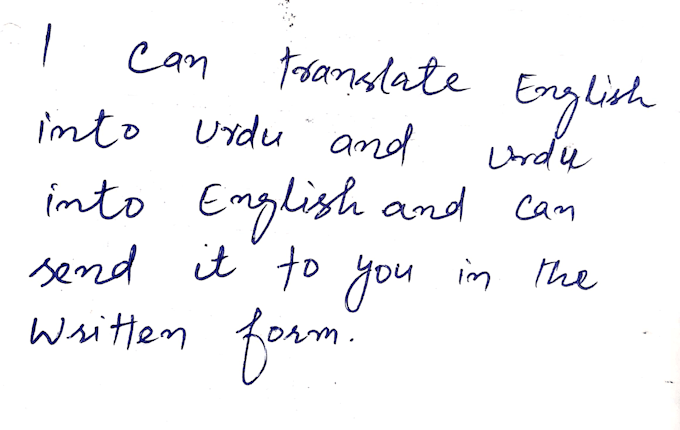 I can translate English
into Urdu and Urdu
into English and can
send it to you in the
Written form.